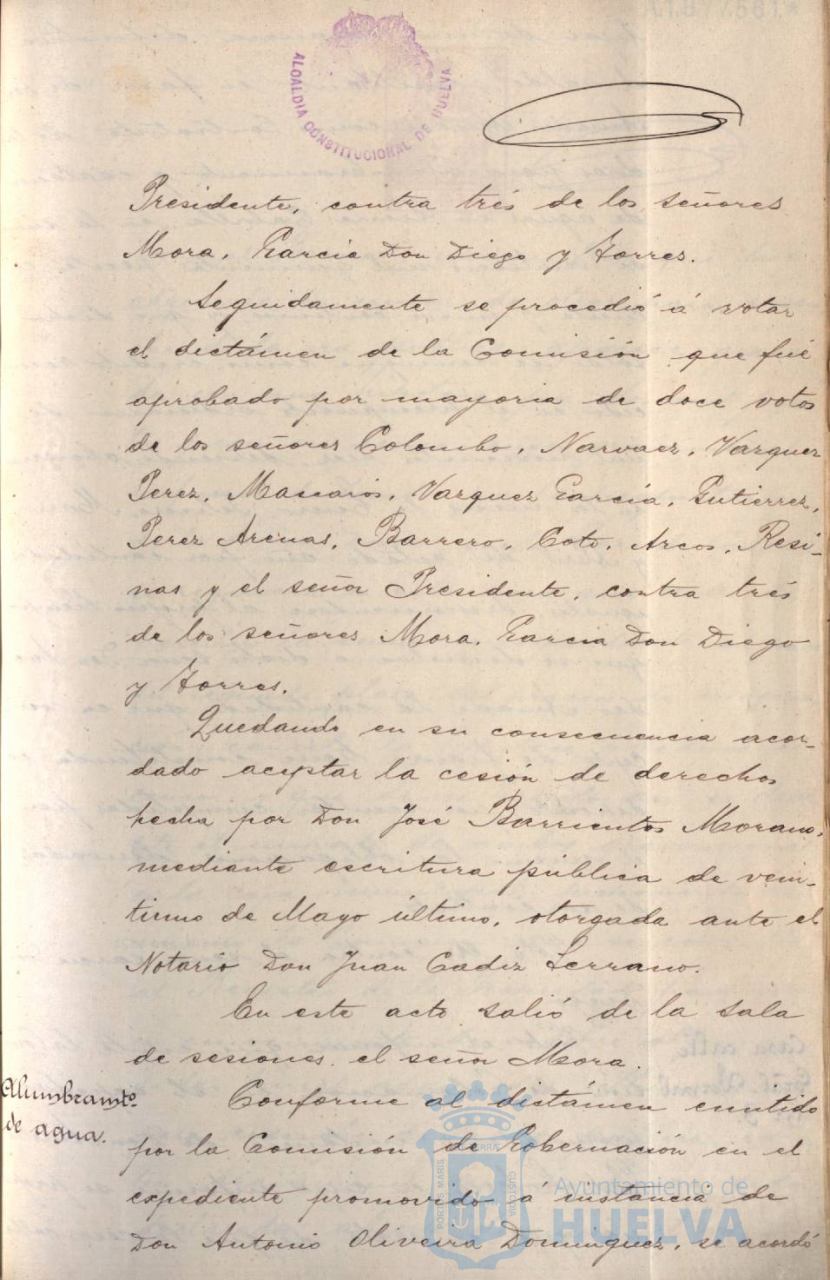 ALCALDIA CONSTITUCIONAL DE HUELVA
Presidente, contra trés de los señores
Mora, Garcia Don Diego y Torres.
Seguidamente se procedió á votar
el dictámen de la Comisión que fué
aprobado por mayoria de doce votos
de los señores Colombo, Narvaez, Vazquez
Perez, Mascarós, Vazquez García, Gutierrez,
Perez Arenas, Barrero, Coto, Arcos, Resi-
nas y el señor Presidente, contra trés
de los señores Mora, Garcia Don Diego
y Torres.
Quedando en su consecuencia acor-
dado aceptar la cesión de derechos
hecha por Don José Barrientos Morano,
mediante escritura pública de vein-
tiuno de Mayo último, otorgada ante el
Notario Don Juan Cadiz Serrano.
En este acto salió de la sala
de sesiones el señor Mora.
Alumbramto
de agua.
Conforme al dictámen emitido
por la Comisión de Gobernación en el
expediente promovido á instancia de
Don Antonio Oliveira Dominguez, se acordó
PORTUS MARIS
CUSTODIA
Ayuntamiento de
HUELVA